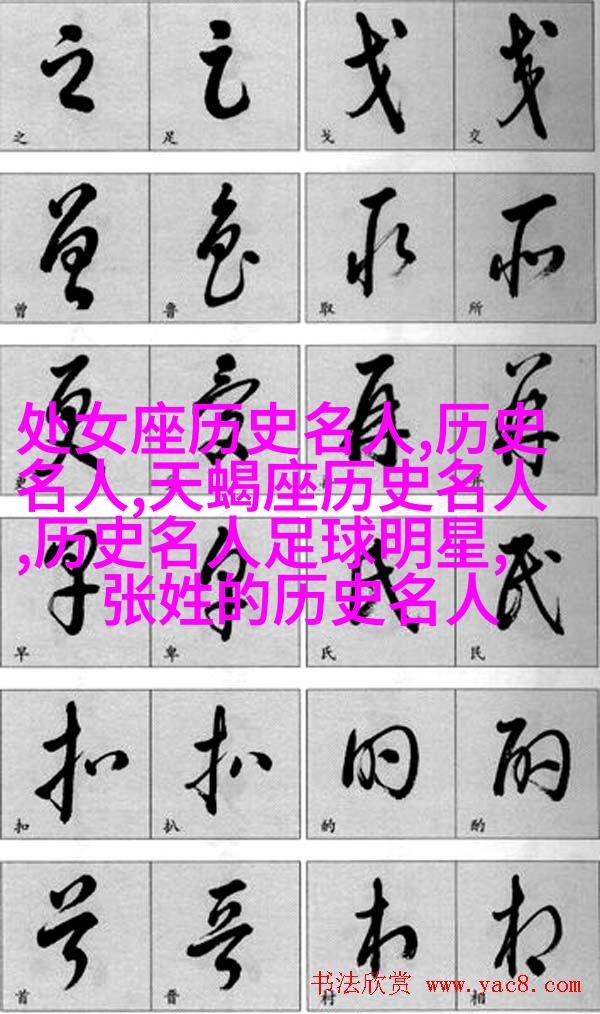 之 足 戈 交
曾 鲁 取 所
处女座历史名人,历史
名人,天蝎座历史名人
,历史名人足球明星,
张姓的历史名人
早 卑 氏 民
扣 扒 的 酌
首 晋 村 相
书法欣赏 www.yac8.com